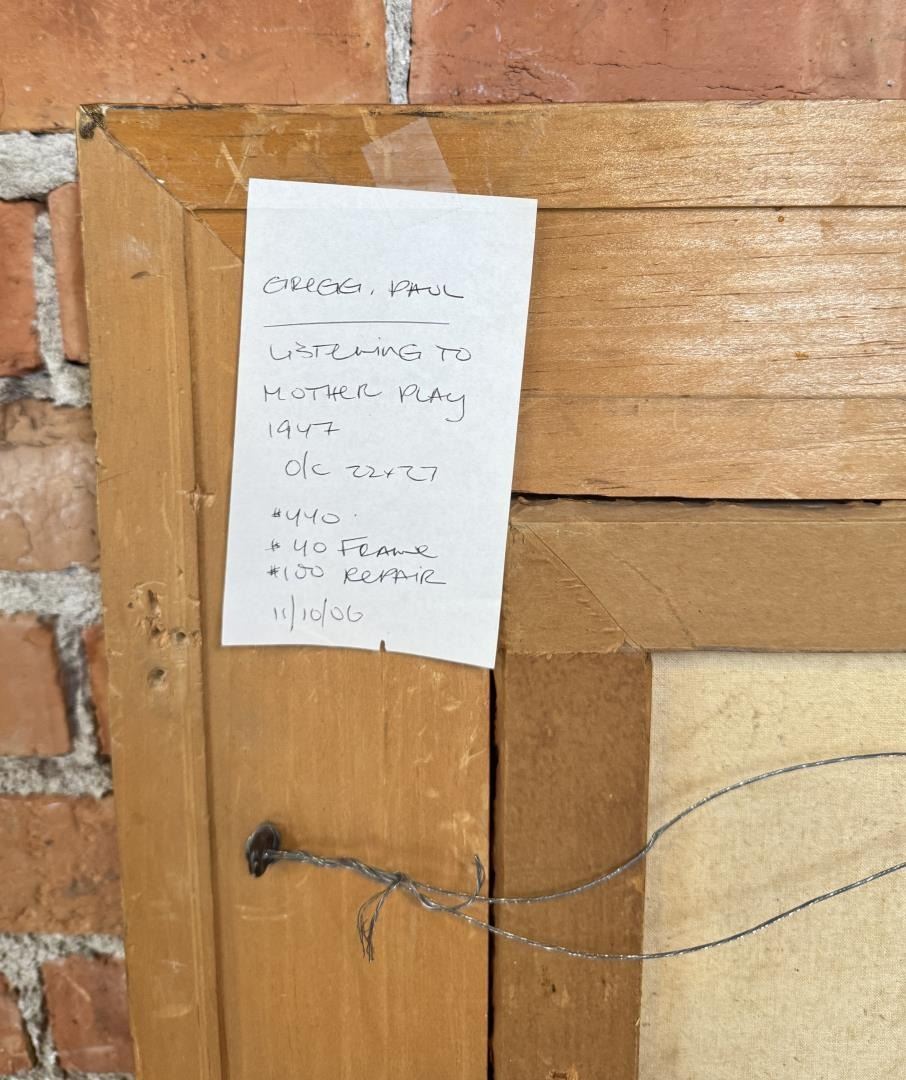 GREGG, PAUL
LISTENING TO
MOTHER PLAY
1947
O/C 22x27
$440
$40 FRAME
$100 REPAIR
11/10/06